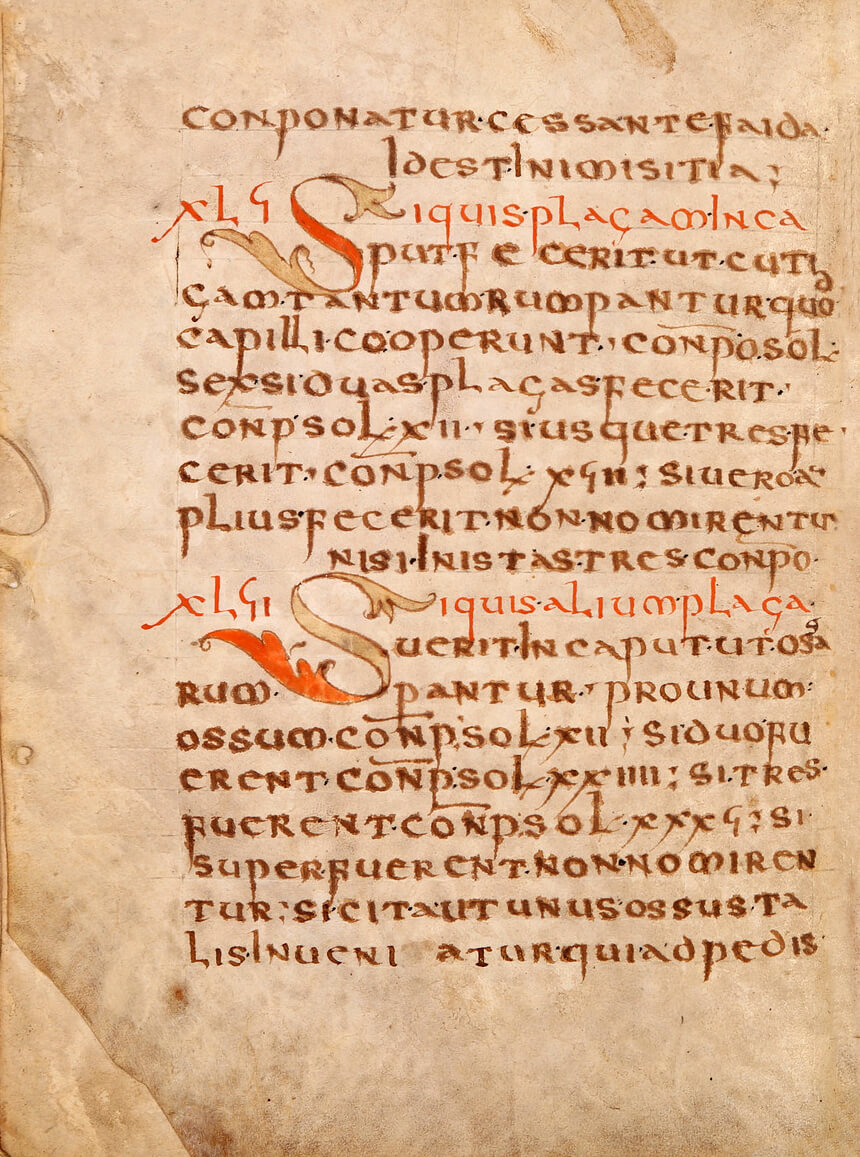 conponatur·cessante faida·
Idest·Inimisitia;
XLVI Si quis plagam In ca
put fecerit·ut·cuti
gam·tantum·Rumpantur quo
capilli·cooperunt·, conpo·sol·
sex·si duas plagas fecerit·
conp sol·xii·, si usque tres fe·
cerit·, conp·sol·xviii; si uero am
plius fecerit·non·nomirentur
nisi·Inistas·tres·conpo·
XLVII Si quis·alium plaga·
uerit·In caput·ut·ossa
rum·pantur·, pro unum·
ossum·conp·sol·xii; si duo fu
erent·conp·sol·xxiiii; si·tres·
fuerent·conp·sol·xxxvi; si
superfuerent·non·nomiren
tur; sic ita ut unus ossus·ta
lis·Inueni atur qui ad pedis